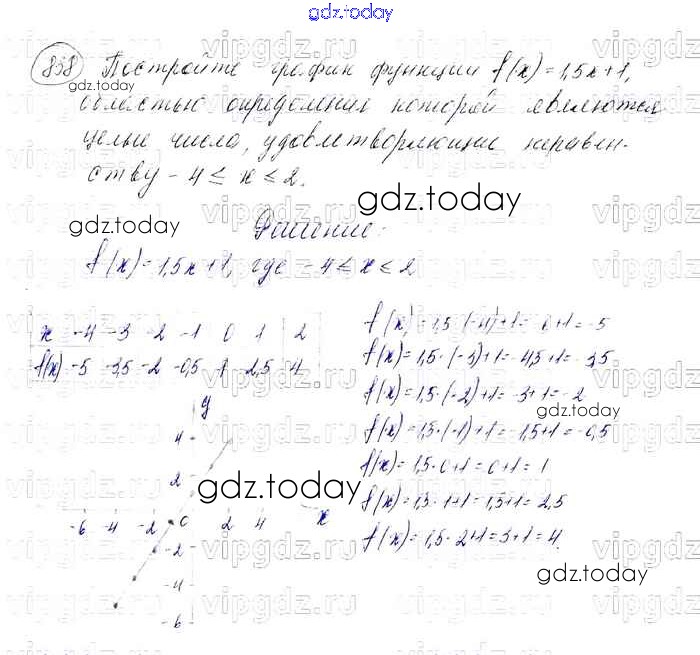 gdz.today
858 Постройте график функции f(x)=1,5x+1,
областью определения которой являются
целые числа, удовлетворяющие неравен-
ству -4 ≤ x ≤ 2.
gdz.today
gdz.today
Решение:
f(x)=1,5x+1, где -4 ≤ x ≤ 2
x -4 -3 -2 -1 0 1 2
f(x) -5 -3,5 -2 -0,5 1 2,5 4
f(x)=1,5·(-4)+1=-6+1=-5
f(x)=1,5·(-3)+1=-4,5+1=-3,5
f(x)=1,5·(-2)+1=-3+1=-2
gdz.today
f(x)=1,5·(-1)+1=-1,5+1=-0,5
f(x)=1,5·0+1=0+1=1
f(x)=1,5·1+1=1,5+1=2,5
f(x)=1,5·2+1=3+1=4.
y
4
2
gdz.today
-6 -4 -2 0 2 4 x
-2
-4
-6
gdz.today
vipgdz.ru